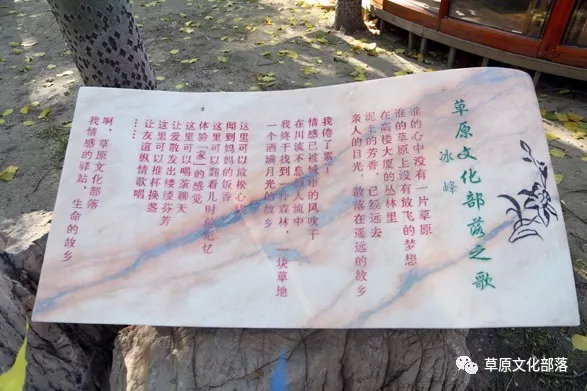 草原文化部落之歌
冰峰
谁的心中没有一片草原
谁的草原上没有放飞的梦想
在高楼大厦的丛林里
泥土的芳香，已经远去
亲人的目光，散落在遥远的故乡
我倦了累了
情感已被城市的风吹干
在川流不息的人流中
我终于找到一片森林，一块草地
一个洒满月光的故乡
这里可以放松心情
闻到妈妈的饭香
这里可以翻看儿时的记忆
体验“家”的感觉
这里可以喝茶聊天
让爱散发出缕缕芬芳
这里可以推杯换盏
让友谊纵情歌唱
……
啊，草原文化部落
我情感的驿站，生命的故乡
草原文化部落